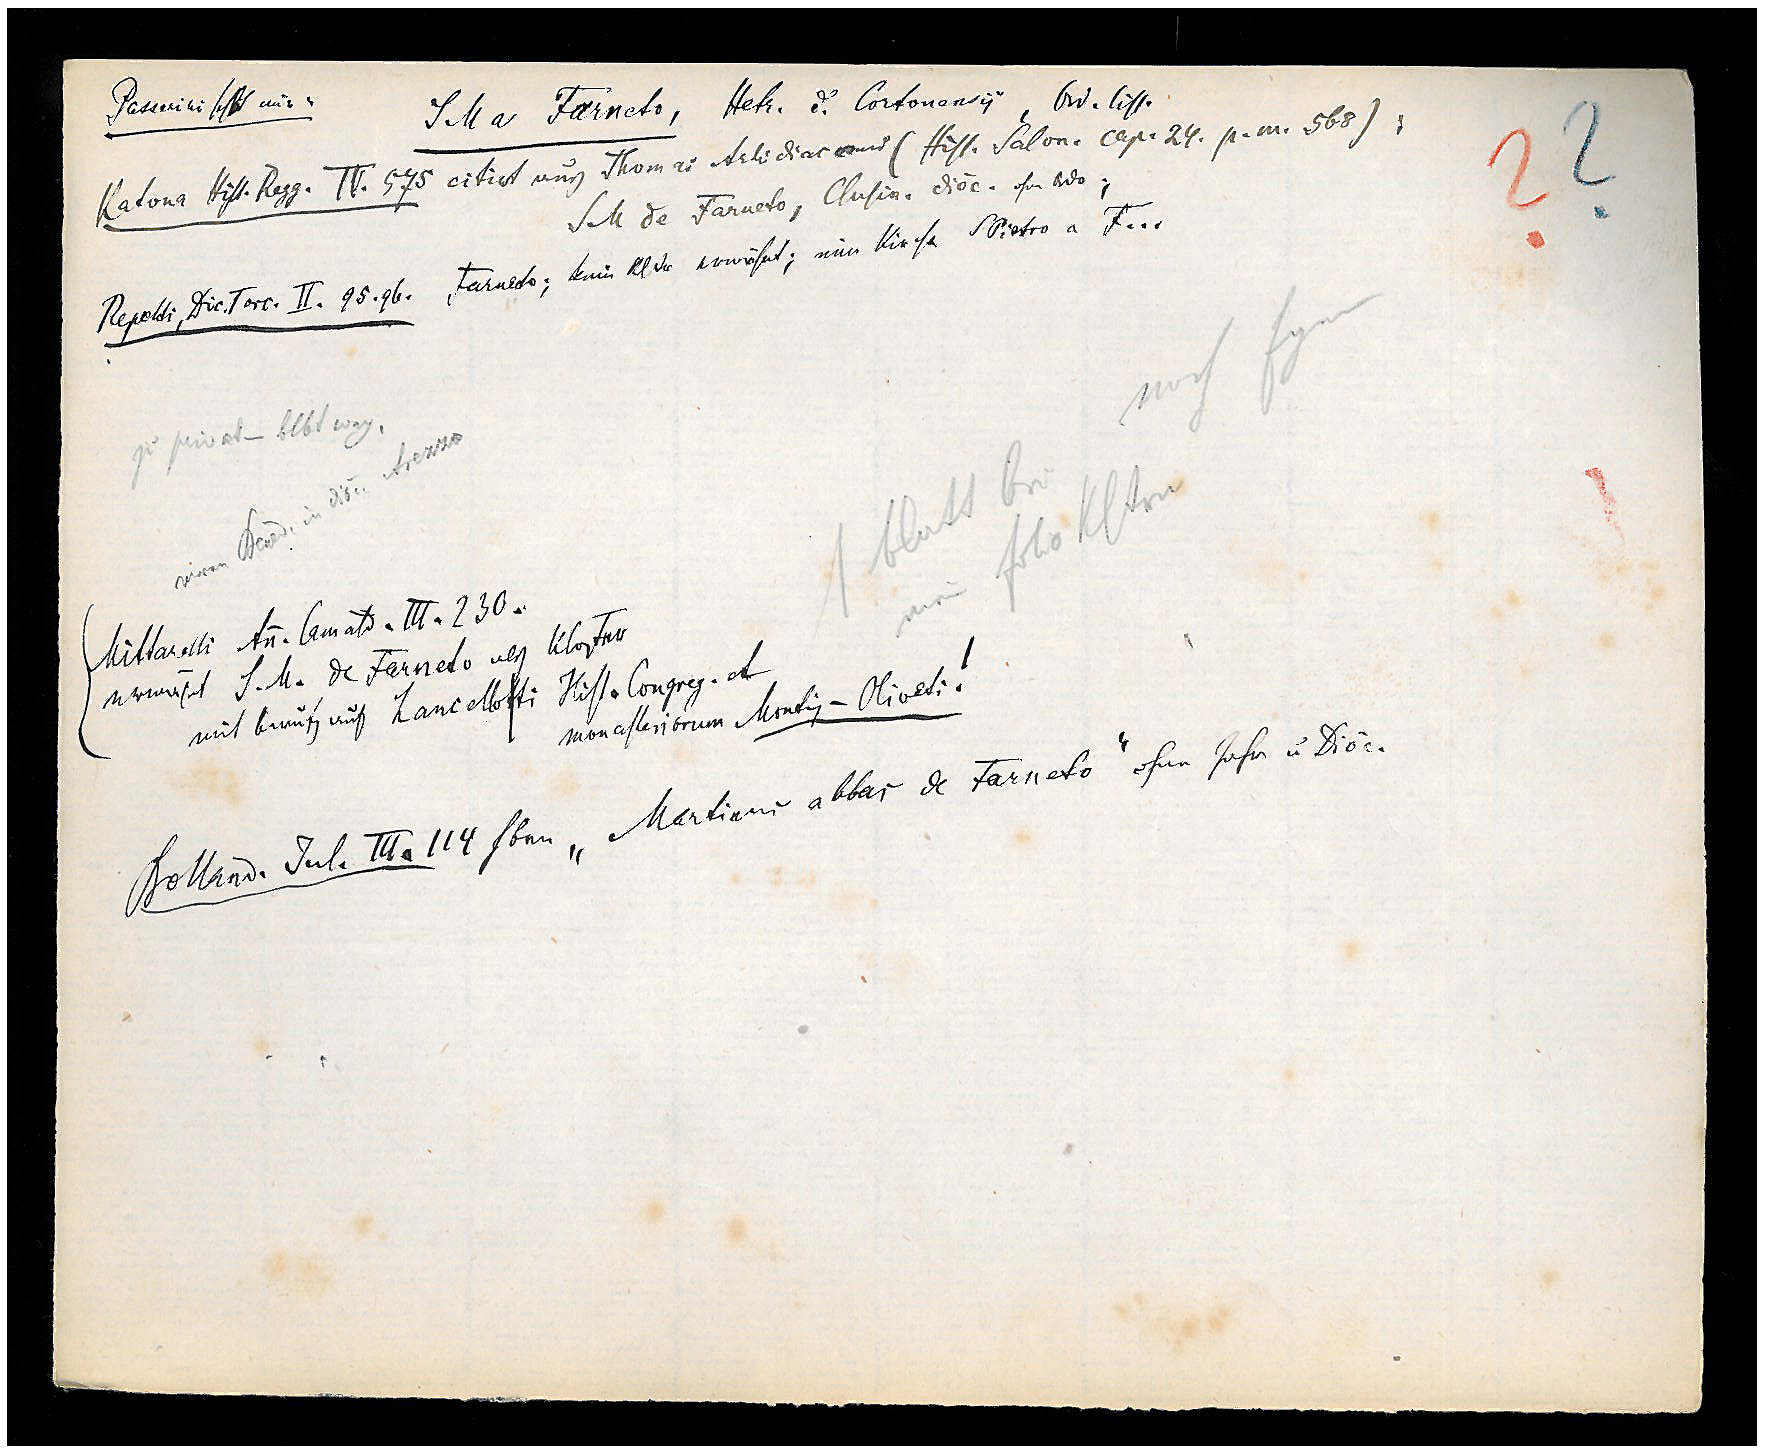 Passerini schbt mir: S M a Farneto, Hetr. d. Cortonensis, Ord. Cist.
Katona Hist. Regg. IV. 575 citirt aus Thomas Archidiaconus (Hist. Salon. cap. 24. p. m. 568);
S M de Farneto, Clusin. diöc. ohne Ordo;
Repetti, Diz. Tosc. II. 95. 96. Farneto; kein Klster erwähnt; eine Kirche S Pietro a F...
noch fgen
zu privat – blbt weg.
einen Bened. in diöc. Arezzo
1 blatt bei
mein folio Klstrn
Mittarelli An. Camald. III. 230.
erwähnt S. M. de Farneto als Kloster
mit bezug auf Lancellotti Hist. Congreg. et
monasteriorum Montis-Oliveti!
Bolland. Jul. III. 114 hbn „Martinus abbas de Farneto" ohne Jahr u Diöc.
? ?